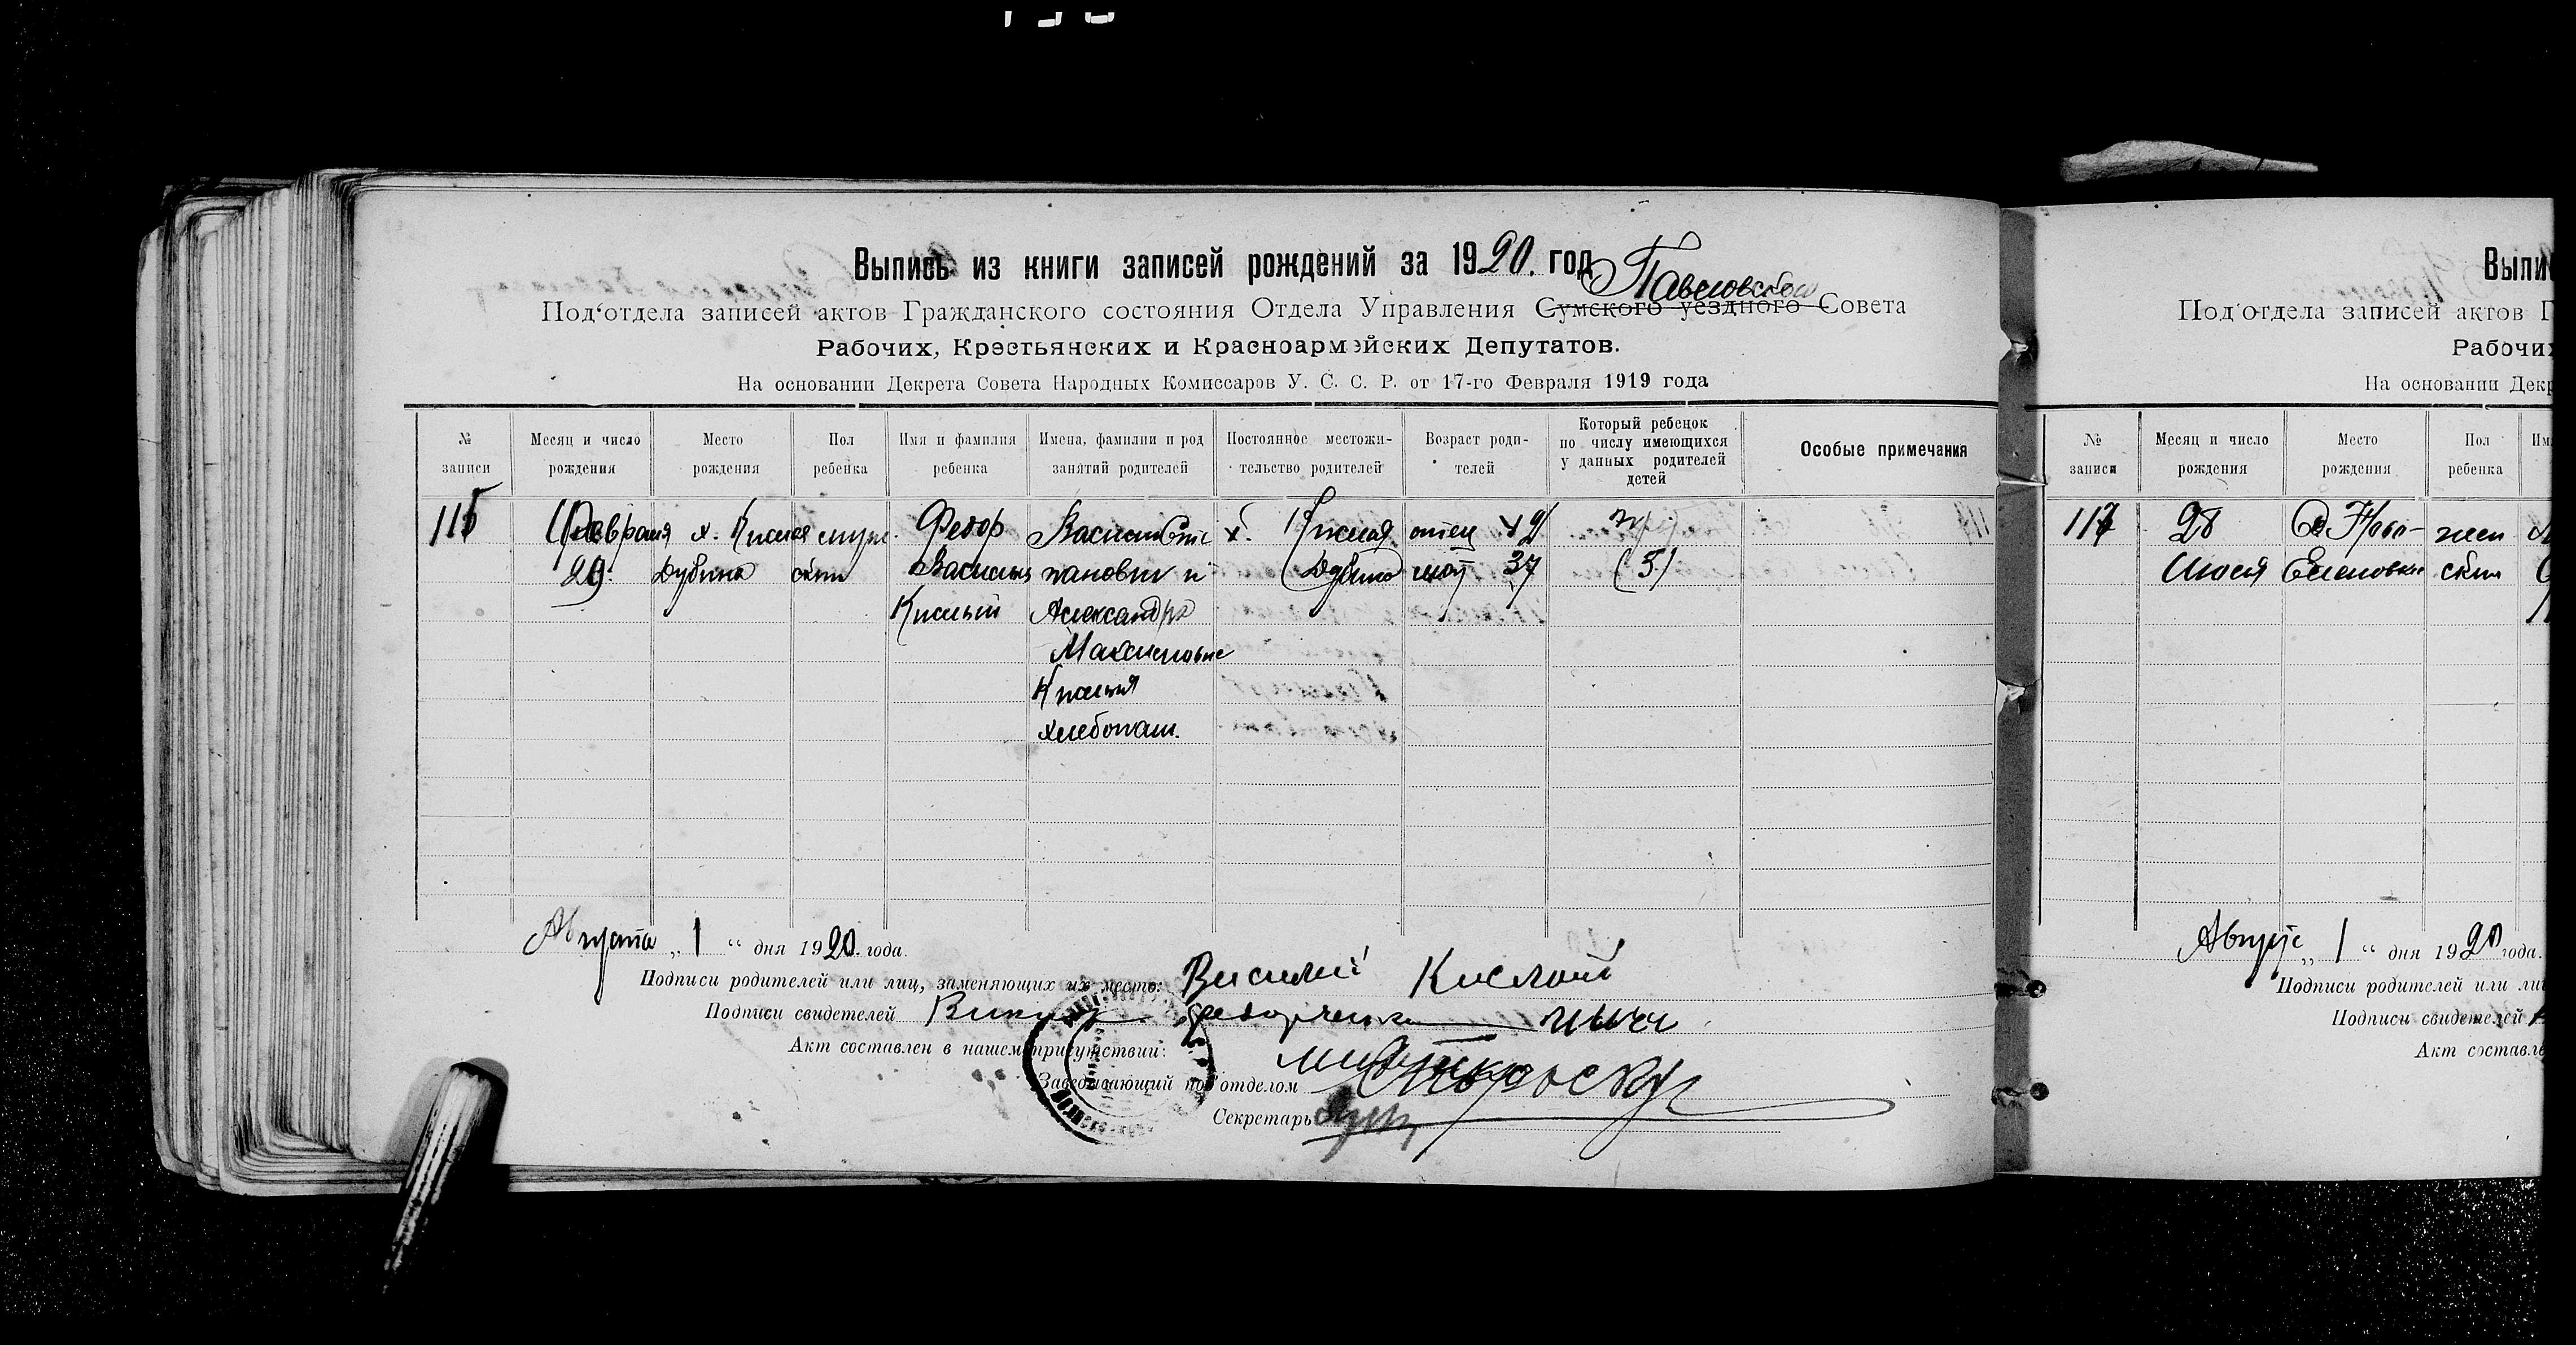 Выпись из книги записей рождений за 1920. год
Павловской
Под‘отдела записей актов Гражданского состояния Отдела Управления Сумского уездного Совета
Рабочих, Крестьянских и Красноармейских Депутатов.
На основании Декрета Совета Народных Комиссаров У. С. С. Р. от 17-го Февраля 1919 года
№ записи
Месяц и число рождения
Место рождения
Пол ребенка
Имя и фамилия ребенка
Имена, фамилии и род занятий родителей
Постоянное местожительство родителей
Возраст родителей
Который ребенок по числу имеющихся у данных родителей детей
Особые примечания
Февраля х. Кислая муж. Федор х. Кислая отец 42
29. Дубина ский Васильев и Дубина мат 37 (5)
Кислый Александра
Максимовна
Кислыя
хлебопаш.
Августа „ 1 “ дня 1920 года.
Подписи родителей или лиц, заменяющих их место: Василий Кислый
Подписи свидетелей
Акт составлен в нашем присутствии:
Заведывающий под‘отделом
Секретарь
Выпи
Под‘отдела записей актов Г
Рабочих
На основании Декр
№ записи
Месяц и число рождения
Место рождения
Пол ребенка
Им
117 28 жен
Июля ский
Август „ 1 “ дня 1920 года.
Подписи родителей или ли
Подписи свидетелей
Акт составле